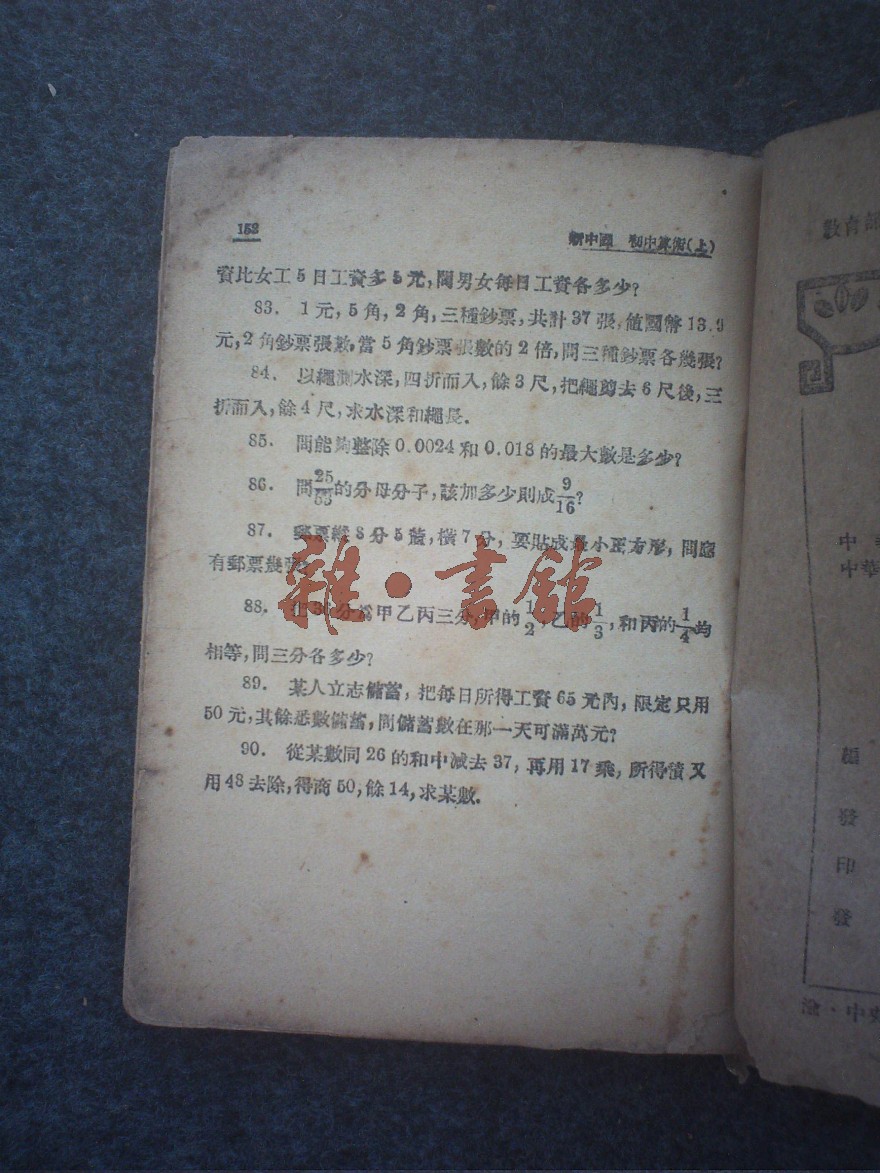 152
新中國 初中算術(上)
資比女工5日工資多5元,問男女每日工資各多少?
83. 1元,5角,2角,三種鈔票,共計37張,值國幣13.9
元,2角鈔票張數,當5角鈔票張數的2倍,問三種鈔票各幾張?
84. 以繩測水深,四折而入,餘3尺,把繩剪去6尺後,三
折而入,餘4尺,求水深和繩長.
85. 問能夠整除0.0024和0.018的最大數是多少?
86. 問25/55的分母分子,該加多少則成9/16?
87. 郵票縱8分5釐,橫7分,要貼成最小正方形,問應
有郵票幾張?
88. 分爲甲乙丙三分,甲的1/2,乙的1/3,和丙的1/4均
相等,問三分各多少?
89. 某人立志儲蓄,把每日所得工資65元內,限定只用
50元,其餘悉數儲蓄,問儲蓄數在那一天可滿萬元?
90. 從某數同26的和中減去37,再用17乘,所得積又
用48去除,得商50,餘14,求某數.
雜·書館
教育部
中華
中華
發
印
發
渝·中央